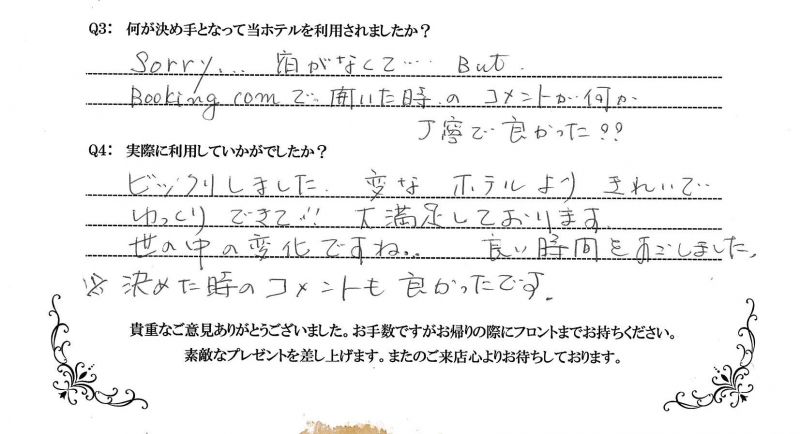 Q3： 何が決め手となって当ホテルを利用されましたか？
Sorry... 宿がなくて… But.
Booking.comで開いた時のコメントが何か
丁寧で良かった??
Q4： 実際に利用していかがでしたか？
ビックリしました。変なホテルよりきれいで
ゆっくりできて!! 大満足しております。
世の中の変化ですね。。良い時間をすごしました。
※決めた時のコメントも良かったです。
貴重なご意見ありがとうございました。お手数ですがお帰りの際にフロントまでお持ちください。
素敵なプレゼントを差し上げます。またのご来店心よりお待ちしております。